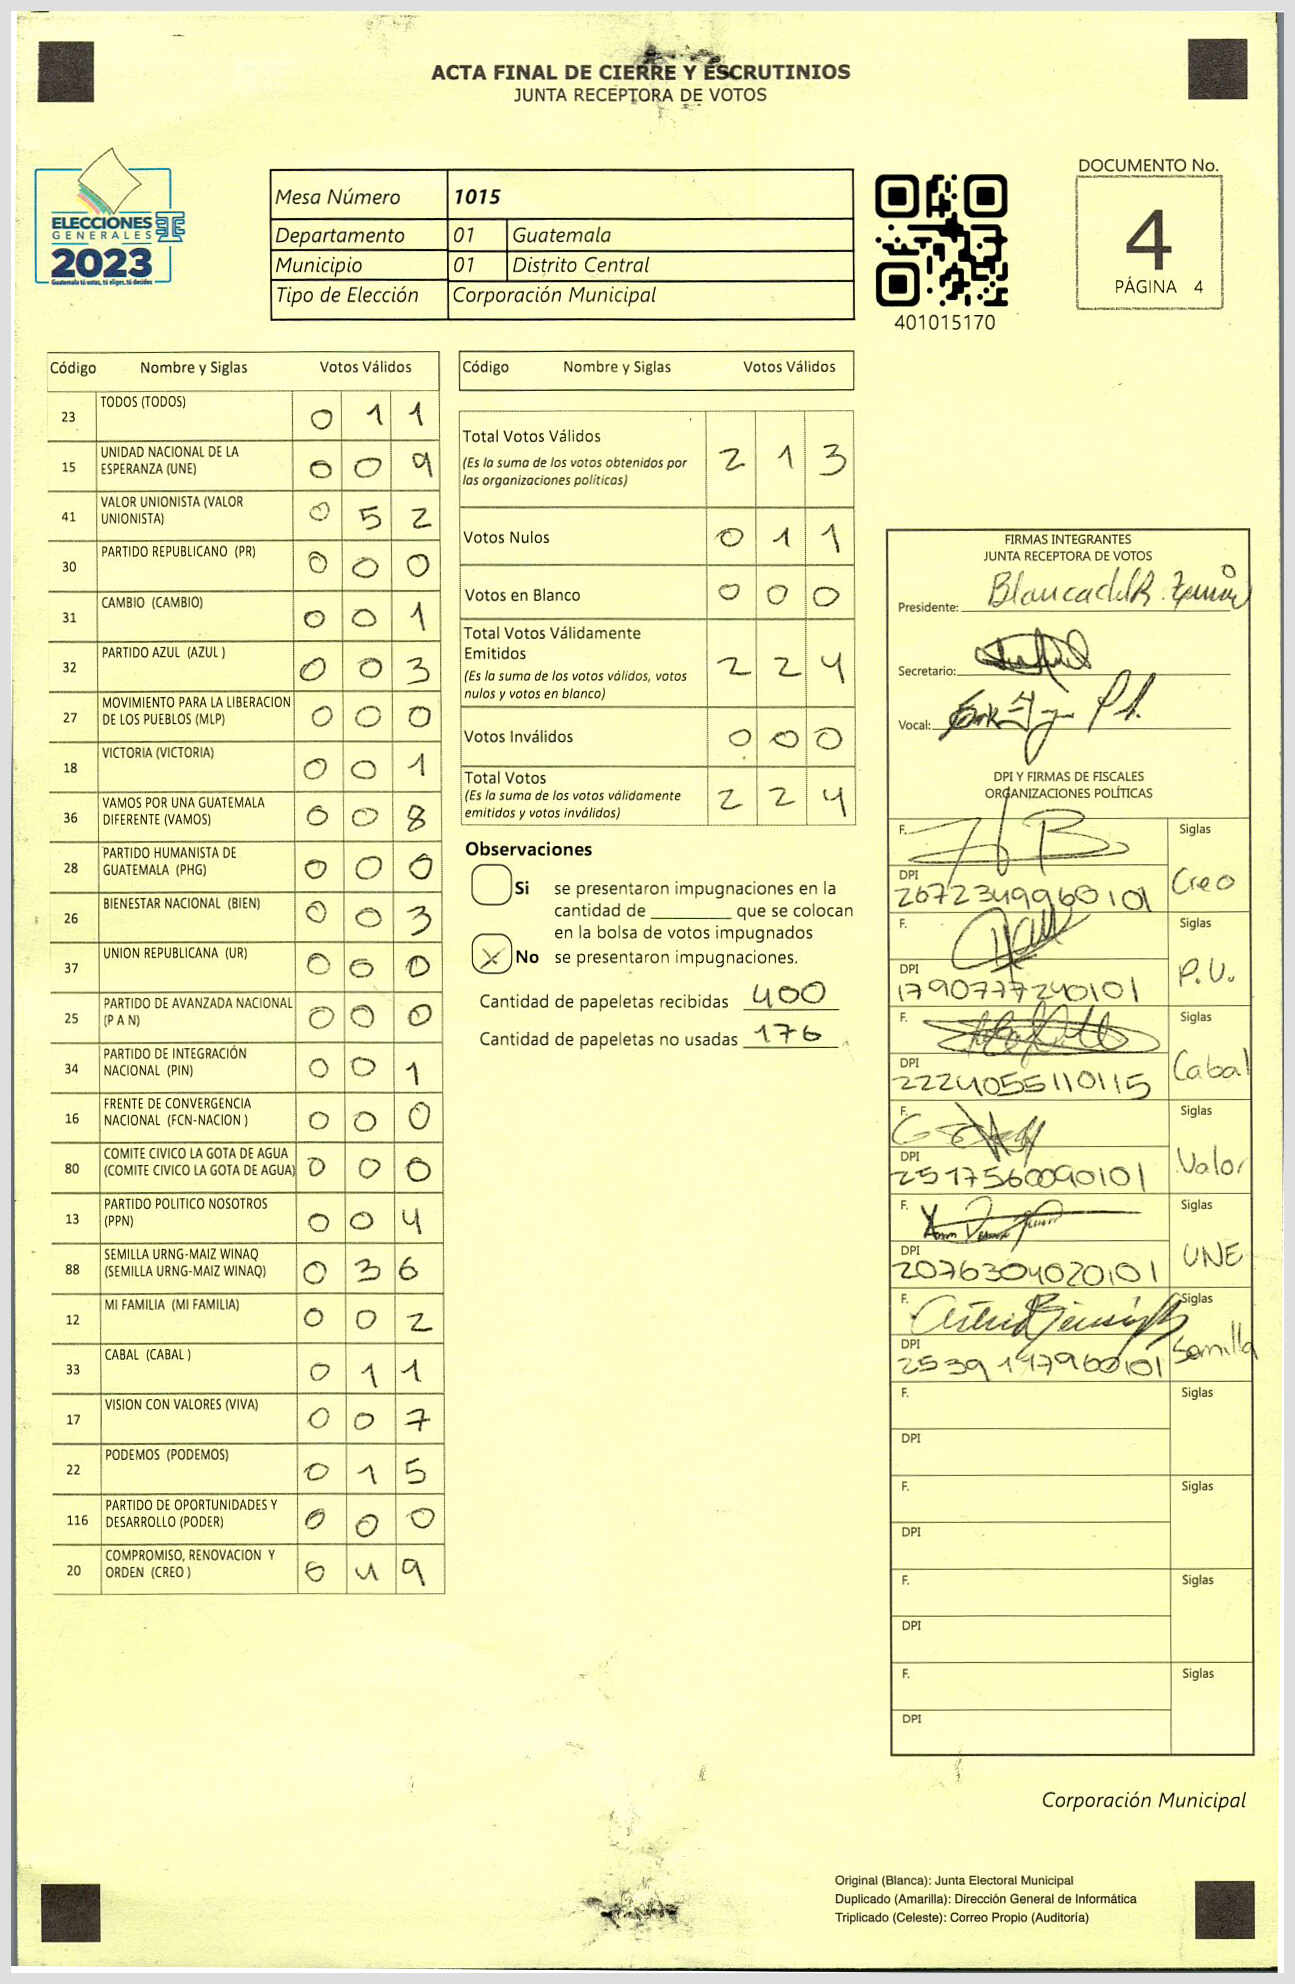 ACTA FINAL DE CIERRE Y ESCRUTINIOS
JUNTA RECEPTORA DE VOTOS
ELECCIONES
GENERALES
2023
Guatemala tú votas, tú eliges, tú decides
Mesa Número 1015
Departamento 01 Guatemala
Municipio 01 Distrito Central
Tipo de Elección Corporación Municipal
401015170
DOCUMENTO No.
4
PÁGINA 4
Código Nombre y Siglas Votos Válidos
23 TODOS (TODOS) 0 1 1
15 UNIDAD NACIONAL DE LA ESPERANZA (UNE) 0 0 9
41 VALOR UNIONISTA (VALOR UNIONISTA) 0 5 2
30 PARTIDO REPUBLICANO (PR) 0 0 0
31 CAMBIO (CAMBIO) 0 0 1
32 PARTIDO AZUL (AZUL ) 0 0 3
27 MOVIMIENTO PARA LA LIBERACION DE LOS PUEBLOS (MLP) 0 0 0
18 VICTORIA (VICTORIA) 0 0 1
36 VAMOS POR UNA GUATEMALA DIFERENTE (VAMOS) 0 0 8
28 PARTIDO HUMANISTA DE GUATEMALA (PHG) 0 0 0
26 BIENESTAR NACIONAL (BIEN) 0 0 3
37 UNION REPUBLICANA (UR) 0 0 0
25 PARTIDO DE AVANZADA NACIONAL (P A N) 0 0 0
34 PARTIDO DE INTEGRACIÓN NACIONAL (PIN) 0 0 1
16 FRENTE DE CONVERGENCIA NACIONAL (FCN-NACION ) 0 0 0
80 COMITE CIVICO LA GOTA DE AGUA (COMITE CIVICO LA GOTA DE AGUA) 0 0 0
13 PARTIDO POLITICO NOSOTROS (PPN) 0 0 4
88 SEMILLA URNG-MAIZ WINAQ (SEMILLA URNG-MAIZ WINAQ) 0 3 6
12 MI FAMILIA (MI FAMILIA) 0 0 2
33 CABAL (CABAL ) 0 1 1
17 VISION CON VALORES (VIVA) 0 0 7
22 PODEMOS (PODEMOS) 0 1 5
116 PARTIDO DE OPORTUNIDADES Y DESARROLLO (PODER) 0 0 0
20 COMPROMISO, RENOVACION Y ORDEN (CREO ) 0 4 9
Código Nombre y Siglas Votos Válidos
Total Votos Válidos 2 1 3
(Es la suma de los votos obtenidos por
las organizaciones políticas)
Votos Nulos 0 1 1
Votos en Blanco 0 0 0
Total Votos Válidamente
Emitidos 2 2 4
(Es la suma de los votos válidos, votos
nulos y votos en blanco)
Votos Inválidos 0 0 0
Total Votos 2 2 4
(Es la suma de los votos válidamente
emitidos y votos inválidos)
Observaciones
Si se presentaron impugnaciones en la
cantidad de ________ que se colocan
en la bolsa de votos impugnados
X No se presentaron impugnaciones.
Cantidad de papeletas recibidas 400
Cantidad de papeletas no usadas 176
FIRMAS INTEGRANTES
JUNTA RECEPTORA DE VOTOS
Presidente:
Secretario:
Vocal:
DPI Y FIRMAS DE FISCALES
ORGANIZACIONES POLÍTICAS
F. Siglas
DPI Creo
2672349960101
F. Siglas
DPI P.U.
1790777240101
F. Siglas
DPI Cabal
2224055110115
F. Siglas
DPI Valor
2517560090101
F. Siglas
DPI UNE
2076304020101
F. Siglas
DPI Semilla
2539147960101
F. Siglas
DPI
F. Siglas
DPI
F. Siglas
DPI
F. Siglas
DPI
Corporación Municipal
Original (Blanca): Junta Electoral Municipal
Duplicado (Amarilla): Dirección General de Informática
Triplicado (Celeste): Correo Propio (Auditoría)